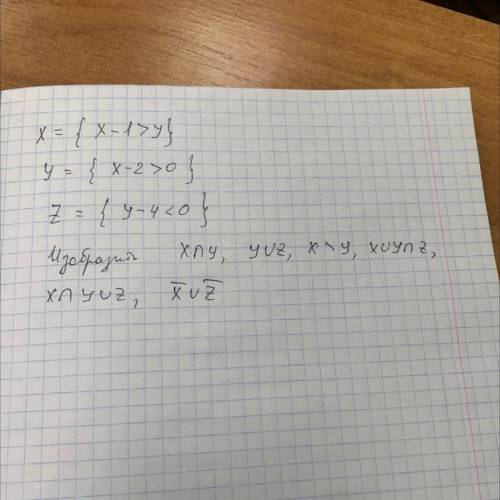 X = { x-1>y}
Y = { x-2>0 }
Z = { y-4<0 }
Изобразить X∩Y, Y∪Z, X\Y, X∪Y∩Z,
X∩Y∪Z, X̅∪Z̅